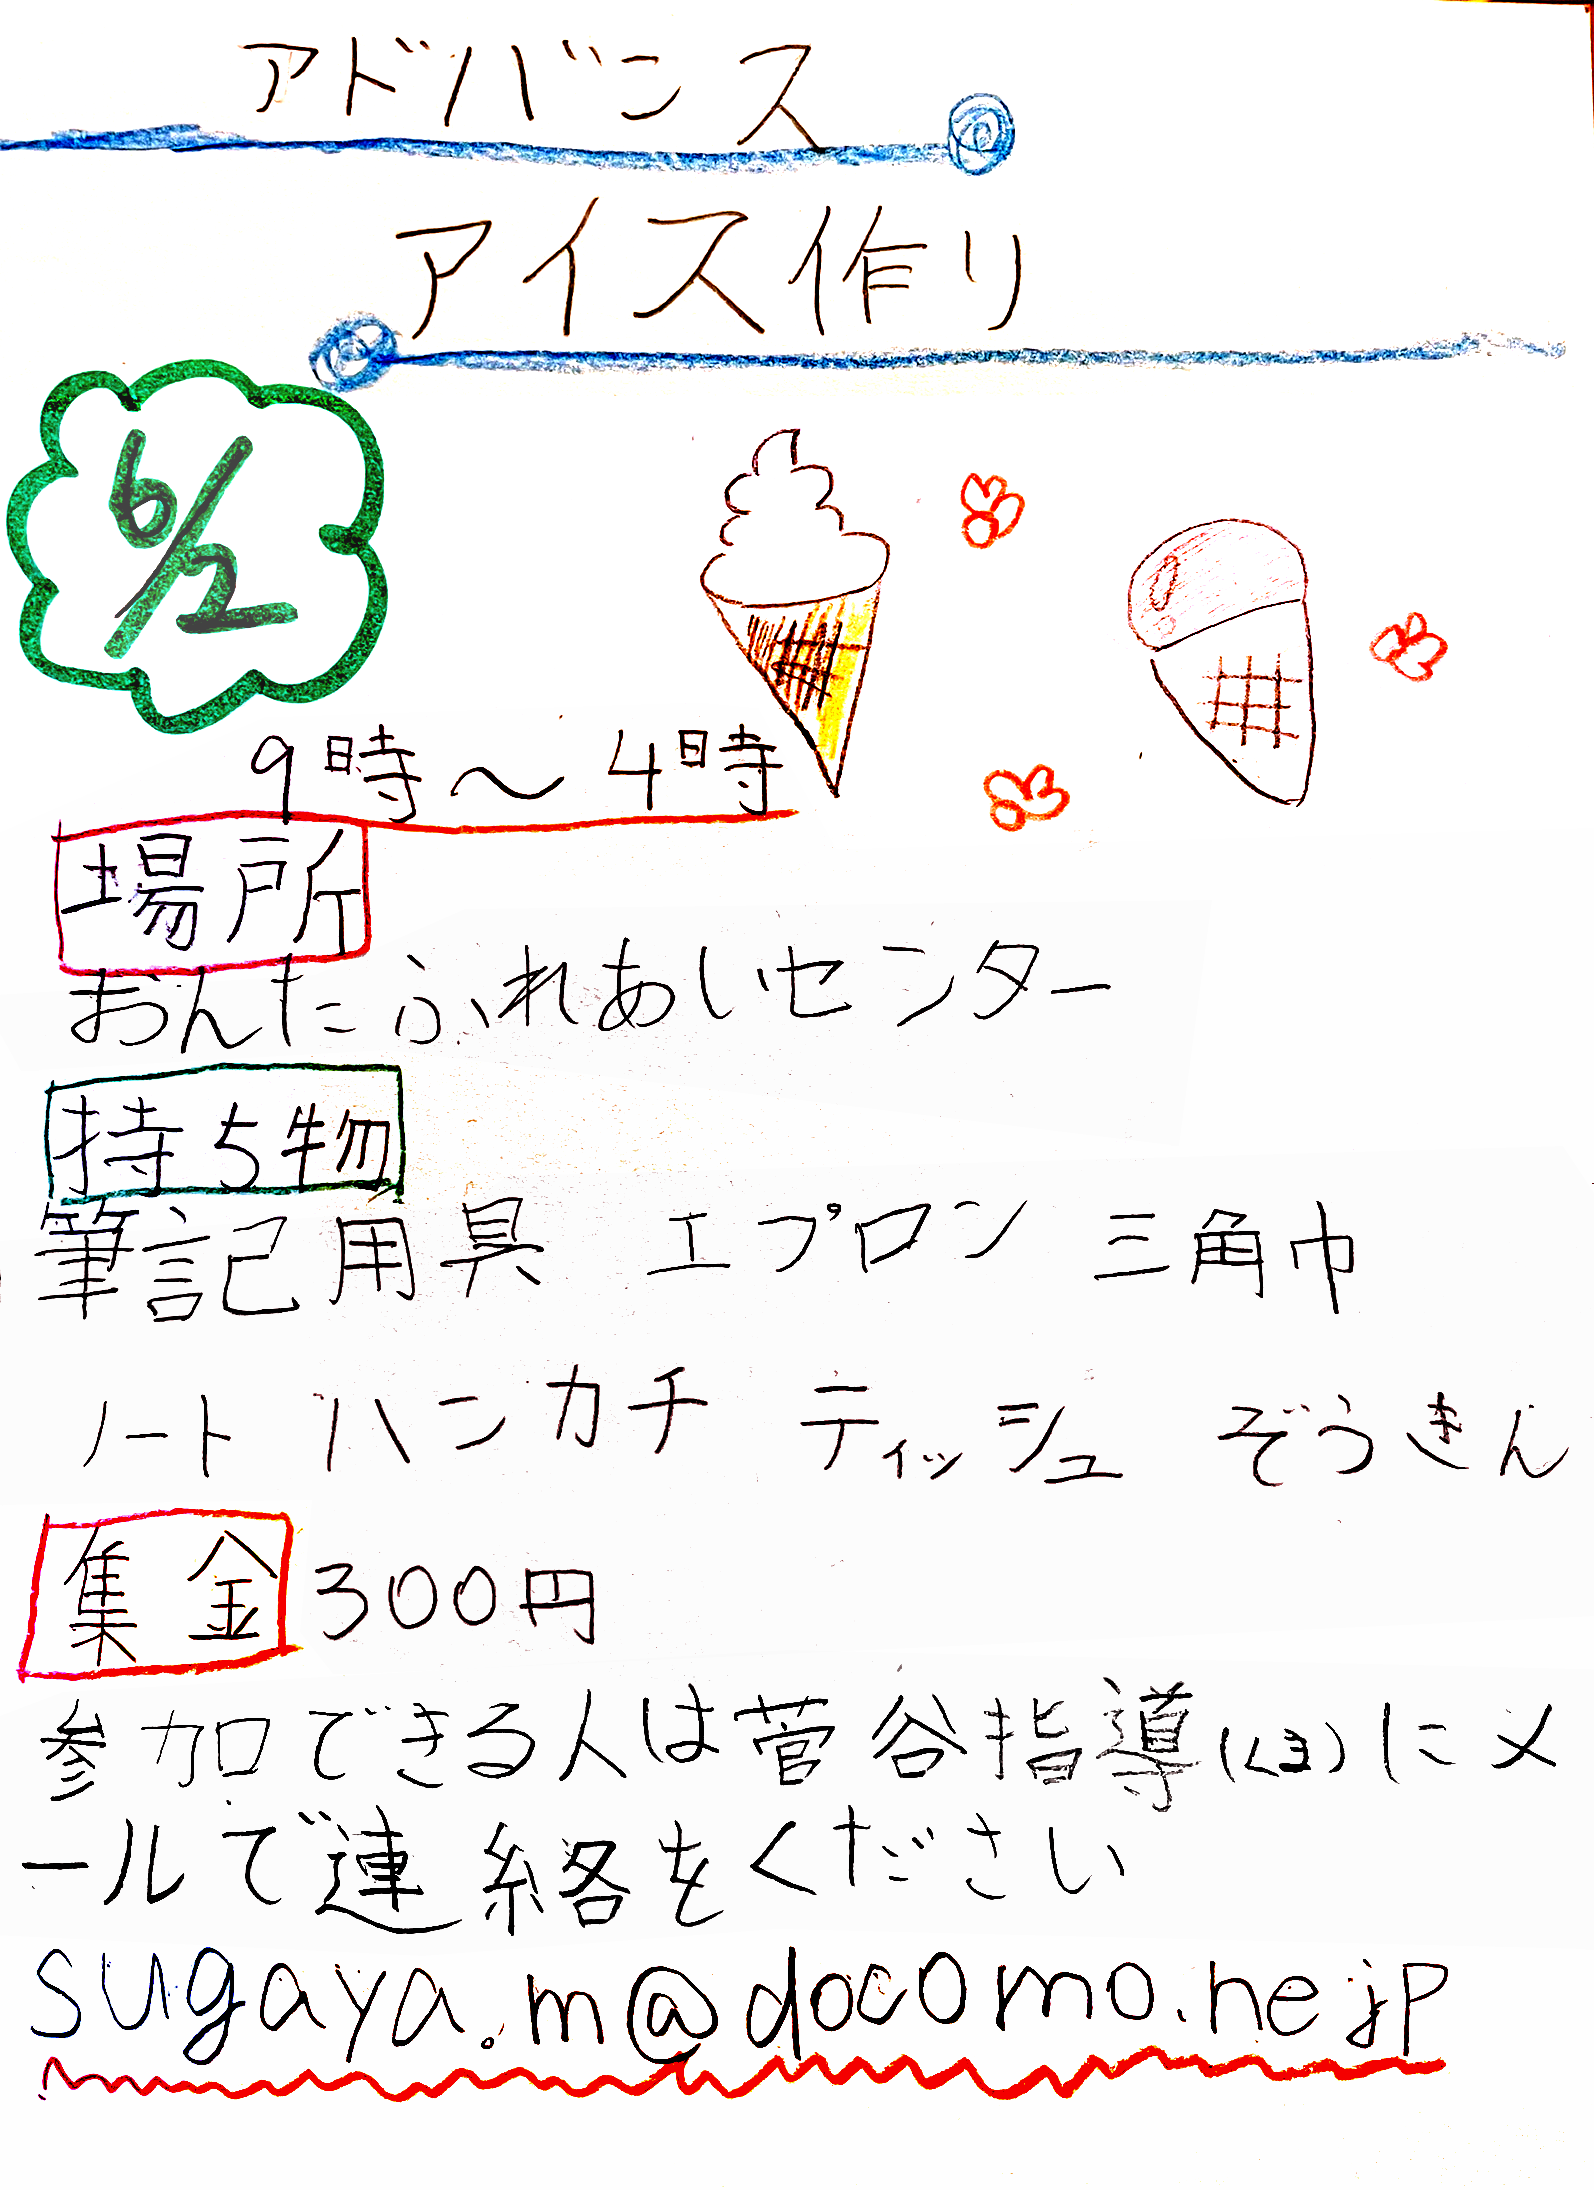 アドバンス
アイス作り
6/2
9時～4時
場所
おんたふれあいセンター
持ち物
筆記用具 エプロン 三角巾
ノート ハンカチ ティッシュ ぞうきん
集金 300円
参加できる人は菅谷指導(くま)にメ
ールで連絡をください
sugaya.m@docomo.ne.jp